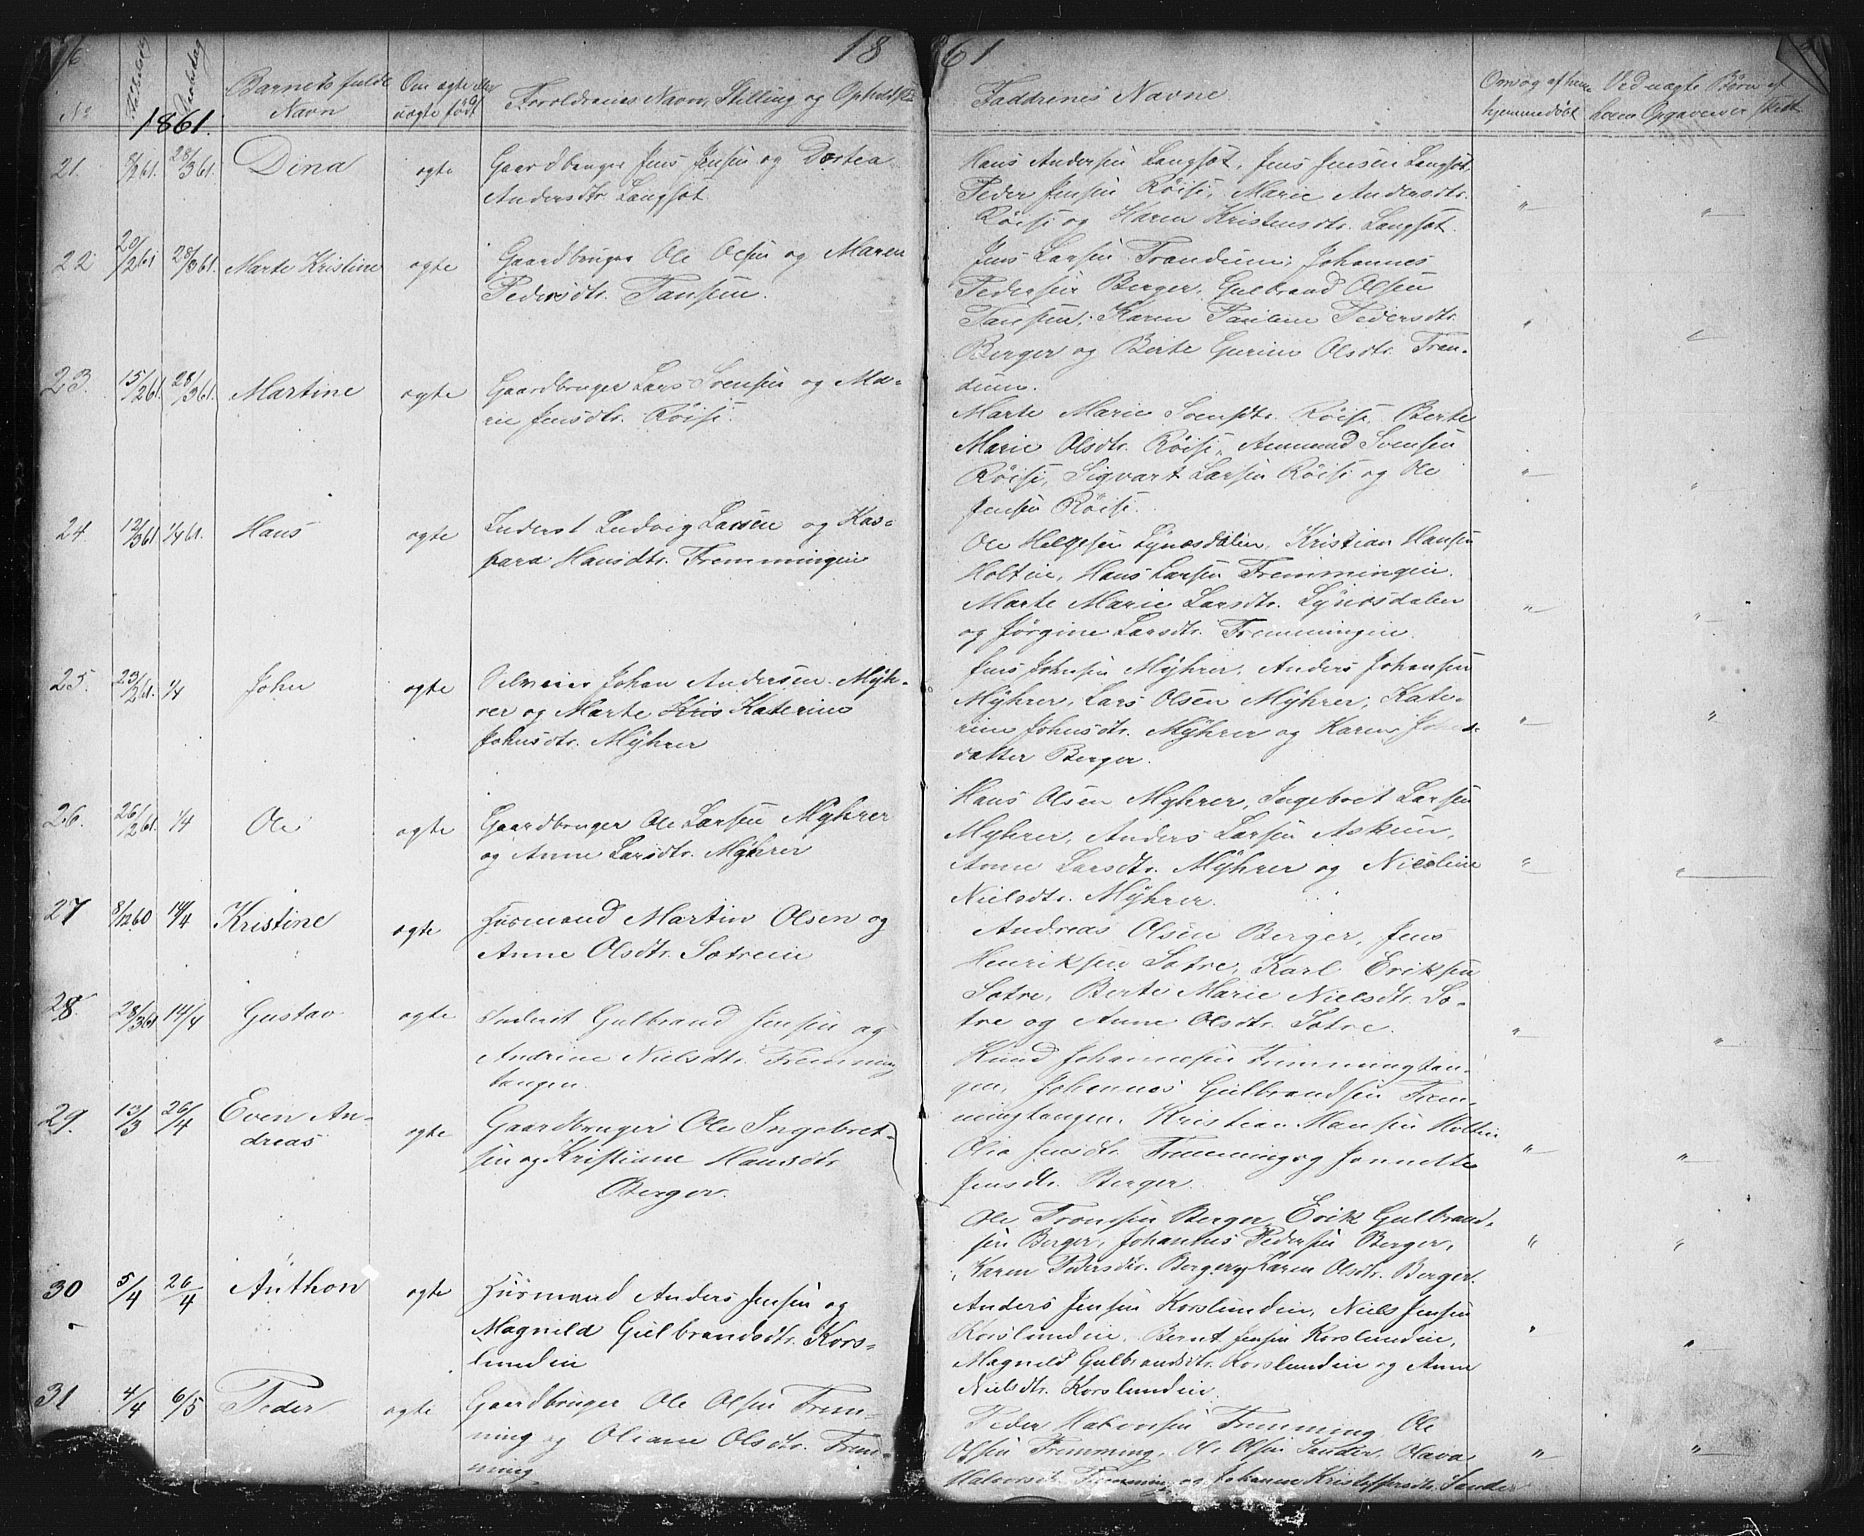 16
1861
No
Fødselsdag
Daabsdag
Barnets fulde Navn
Om ægte eller uægte født
Forældrenes Navn, Stilling og Opholdssted
Faddrenes Navne
hjemmedøbt
Ved uægte Børn
1861.
21. 8/2 61. 28/3 61. Dina ægte Gaardbruger Jens Jensen og Dortea
Andersdtr. Langsæt.
Hans Andersen Langsæt, Jens Jensen Langsæt,
Peder Jensen Röise, Marie Andersdtr.
Röise og Karen Kristensdtr. Langsæt.
22 20/2 61 28/3 61. Marte Kristine ægte Gaardbruger Ole Olsen og Maren
Pedersdtr. Tansen.
Jens Larsen Trandum, Johannes
Pedersen Berger, Gulbrand Olsen
Tansen, Karen Pauline Pedersdtr.
Berger og Berte Gurine Olsdtr. Tran-
dum.
23. 15/2 61. 28/3 61. Martine ægte Gaardbruger Lars Svensen og Ma-
ren Jensdtr. Röise
Marte Marie Svensdtr. Röise, Berte
Marie Olsdtr. Röise, Amund Svensen
Röise, Sigvart Larsen Röise og Ole
Jensen Röise.
24. 12/3 61 1/4 61. Hans ægte Inderst Ludvig Larsen og Kas-
para Hansdtr. Fremmingen
Ole Helgesen Lÿnæsdalen, Kristian Hansen
Holtene, Hans Larsen Fremmingen.
Marte Marie Larsdtr. Lÿnæsdalen
og Jörgine Larsdtr. Fremmingen.
25. 23/2 61. 1/4 John ægte Selveier Johan Andersen Mÿh-
rer og Marte Kris Katerine
Johnsdtr. Mÿhrer
Jens Johnsen Mÿhrer, Anders Johansen
Mÿhrer, Lars Olsen Mÿhrer, Kate-
rine Johnsdtr. Mÿhrer og Karen
datter Berger.
26. 26/2 61. 1/4 Ole ægte Gaardbruger Ole Larsen Mÿhrer
og Anne Larsdtr. Mÿhrer
Hans Olsen Myhrer, Ingebret Larsen
Myhrer, Anders Larsen Askim,
Anne Larsdtr. Mÿhrer og Nicoline
Nielsdtr. Mÿhrer.
27 8/12 60 14/4 Kristine ægte Husmand Martin Olsen og
Anne Olsdtr. Sætreie
Andreas Olsen Berger, Jens
Henriksen Sætre, Karl Eriksen
Sætre, Berte Marie Nielsdtr. Sæ-
tre og Anne Olsdtr. Sætre.
28. 28/3 61 14/4 Gustav ægte Inderst Gulbrand Jensen og
Andrine Nielsdtr. Fremming
tangen.
Knud Johannesen Fremmingtan-
gen, Johannes Gulbrandsen Frem-
mingtangen, Kristian Hansen Holtene
Olia Jensdtr. Fremming og Jonnette
Jensdtr. Berger.
29. 13/3 26/4 Even An-
dreas ægte Gaardbruger Ole Ingebret-
sen og Kristiane Hansdtr.
Berger.
Ole Tronsen Berger, Erik Gulbrand-
sen Berger, Johannes Pedersen Berger,
Karen Pedersdtr. Berger og Karen Olsdtr. Berger.
30 5/4 26/4 Anthon ægte Husmand Anders Jensen og
Magnild Gulbrandsdtr. Kors-
lunden
Anders Jensen Korslunden, Niels Jensen
Korslunden, Bernt Jensen Korslunden,
Magnild Gulbrandsdtr. Korslunden og Anne
Nielsdtr. Korslunden.
31 4/4 6/5 Peder ægte Gaardbruger Ole Olsen Frem-
ming og Oliane Olsdtr. Frem-
ming
Peder Halvorsen Fremming, Ole
Olsen Fremming, Ole Olsen Sander, Olava
Halvorsdtr. Fremming og Johanne Kristoffersdtr. Sander